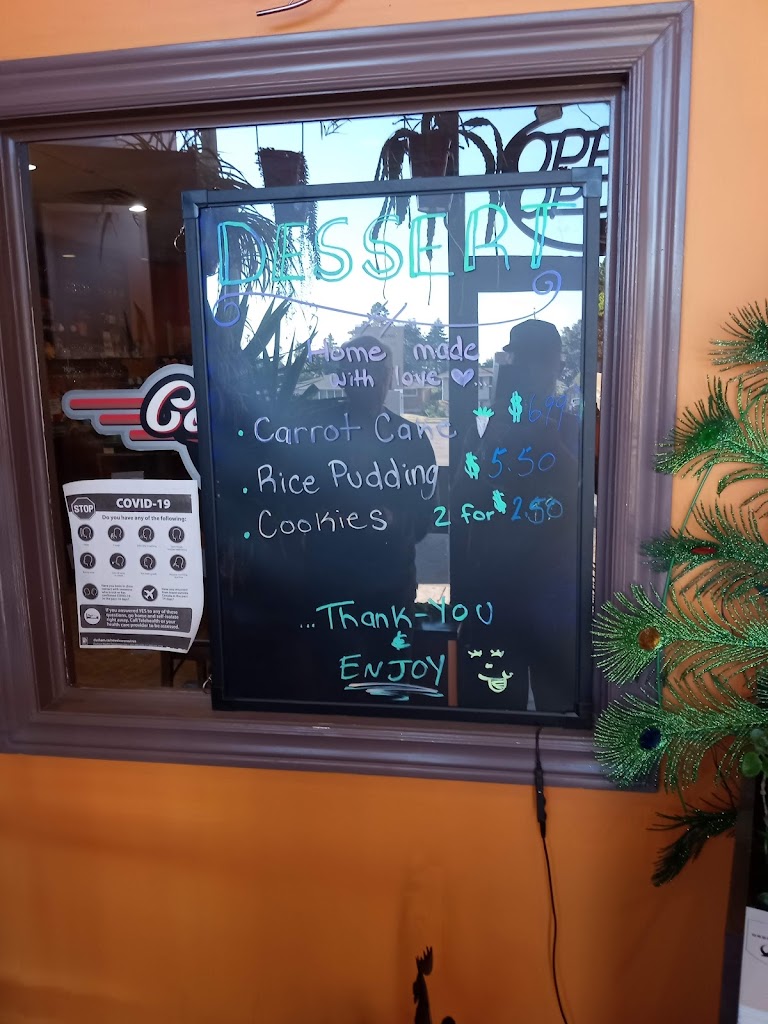 OPE
DESSERT
Home made
with love ...
Carrot Cake $6.99
Rice Pudding $5.50
Cookies 2 for $2.50
...Thank-You
&
ENJOY
STOP COVID-19
Do you have any of the following:
If you answered YES to any of these
questions, go home and self-isolate
right away. Call Telehealth or your
health care provider to be assessed.